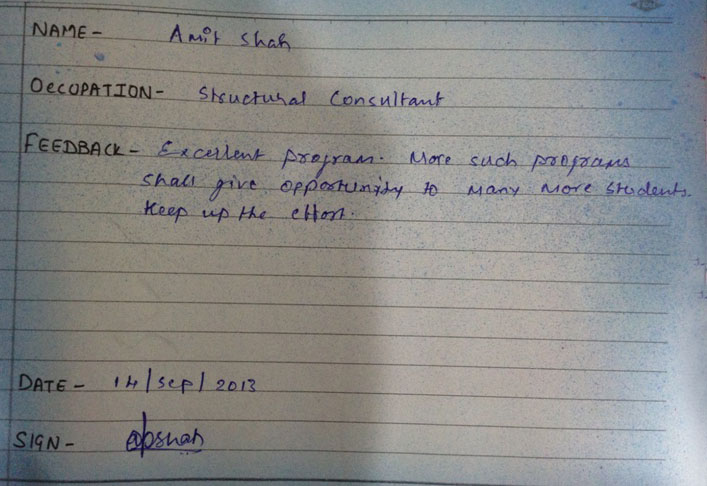 NAME - Amit Shah
OCCOPATION - Structural Consultant
FEEDBACK - Excellent program. More such programs
shall give opportunity to many more students.
Keep up the effort.
DATE - 14/Sep/2013
SIGN - apshah